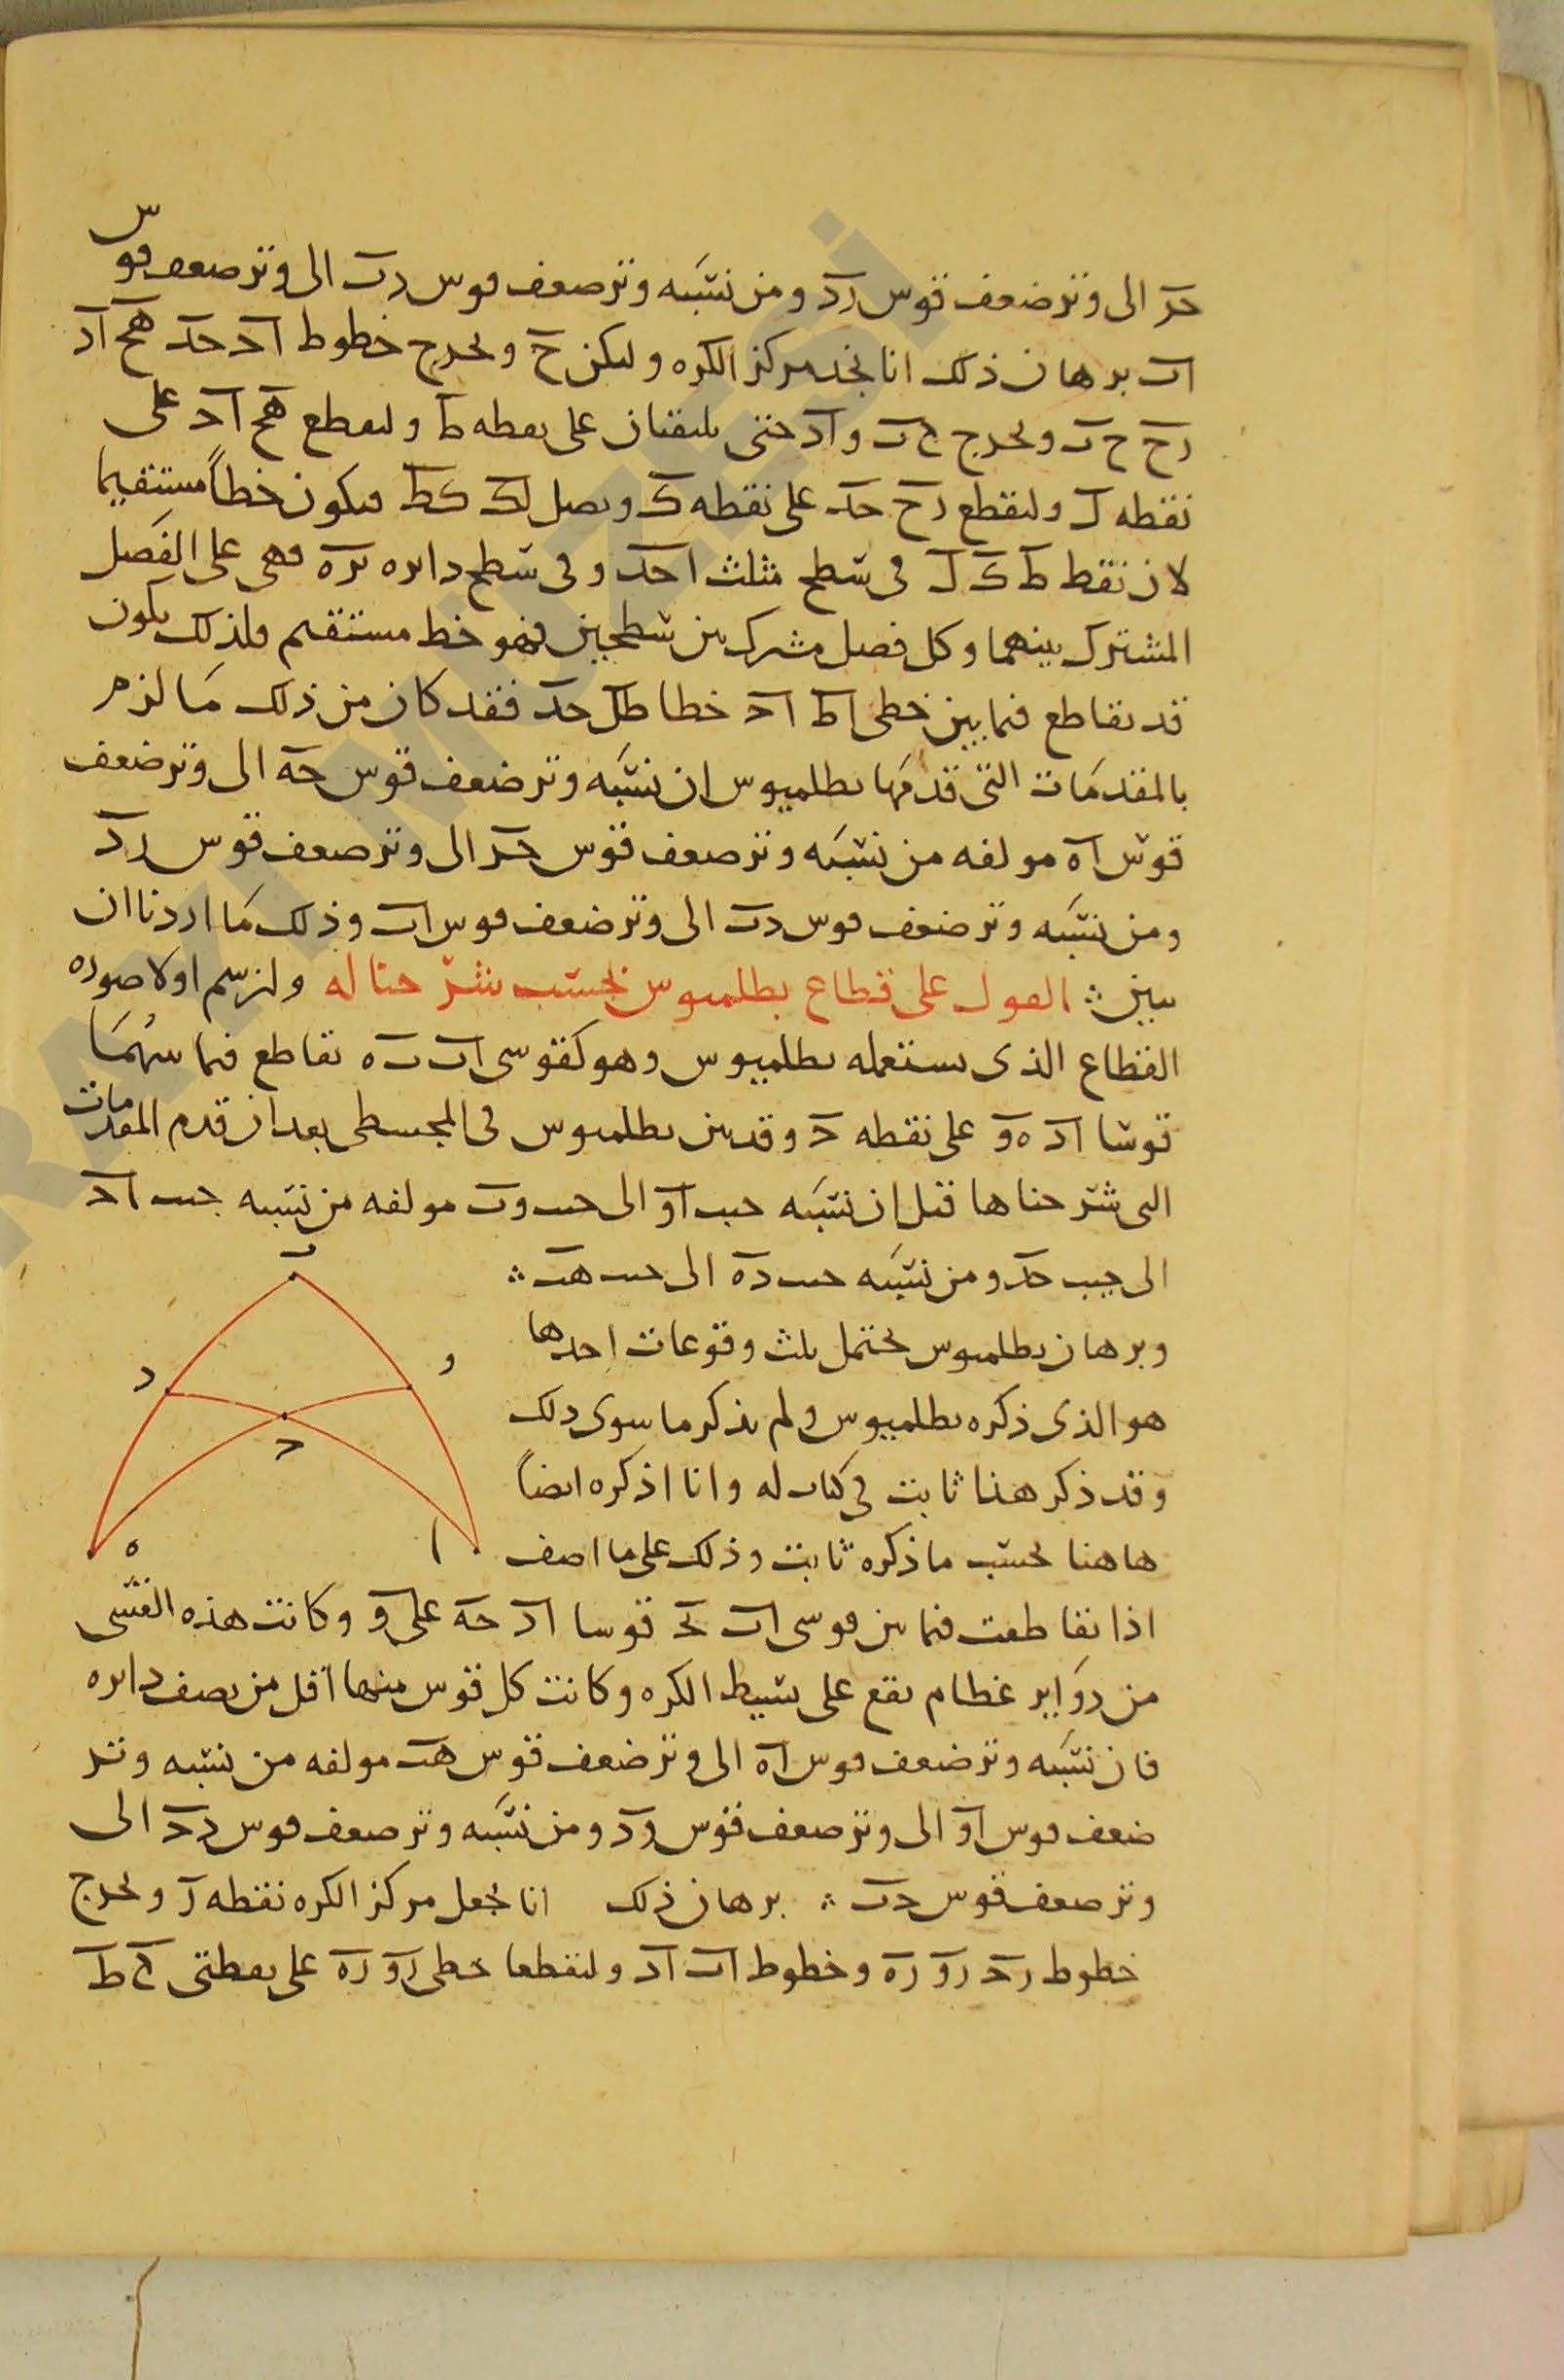 حز الى وتر ضعف قوس زد ومن نسبه وتر ضعف قوس دب الى وتر ضعف قوس
اب برهان ذلك انا نجد مركز الكره وليكن ح ونخرج خطوط اح حد هح اد
زح ح ب ونخرج ح ب و اد حتى يلتقيان على نقطه ط وليقطع هح اح على
نقطه ل وليقطع زح حد على نقطه ك ونصل لك كط فيكون خطاً مستقيما
لان نقط ط ك ل فى سطح مثلث احد وفى سطح دايره بزه فهى على الفصل
المشترك بينهما وكل فصل مشترك بين سطحين فهو خط مستقيم فلذلك يكون
قد تقاطع فيما بين خطى اط اح خطا طل حد فقد كان من ذلك ما لزم
بالمقدمات التى قدمها بطلميوس ان نسبه وتر ضعف قوس حه الى وتر ضعف
قوس اه مولفه من نسبه وتر ضعف قوس حز الى وتر ضعف قوس زد
ومن نسبه وتر ضعف قوس دب الى وتر ضعف قوس اب وذلك ما اردنا ان
نبين ؞ القول على قطاع بطلميوس بحسب شرحنا له ولنرسم اولا صوره
القطاع الذى يستعمله بطلميوس وهو كقوسى اب ب ه تقاطع فيما بينهما
قوسا اد ه و على نقطه ح وقد بين بطلميوس فى المجسطى بعد ان قدم المقدمات
التى شرحناها قبل ان نسبه جيب او الى جيب وب مولفه من نسبه جيب اح
الى جيب حد ومن نسبه جيب ده الى جيب هب ؞
وبرهان بطلميوس يحتمل ثلث وقوعات احدها
هو الذى ذكره بطلميوس ولم يذكر ما سوى ذلك
وقد ذكر هذا ثابت فى كتاب له وانا اذكره ايضاً
هاهنا بحسب ما ذكره ثابت وذلك على ما اصف
اذا تقاطعت فيما بين قوسى اب ب ح قوسا اد حه على و وكانت هذه القسى
من دواير عظام تقع على بسيط الكره وكانت كل قوس منها اقل من نصف دايره
فان نسبه وتر ضعف قوس اه الى وتر ضعف قوس هب مولفه من نسبه وتر
ضعف قوس او الى وتر ضعف قوس ود ومن نسبه وتر ضعف قوس دح الى
وتر ضعف قوس حب ؞ برهان ذلك انا نجعل مركز الكره نقطه ز ونخرج
خطوط زح زو زه وخطوط اب اد وليقطعا خطى زو زه على نقطتى ح ط
ب
د
و
ح
ه
ا